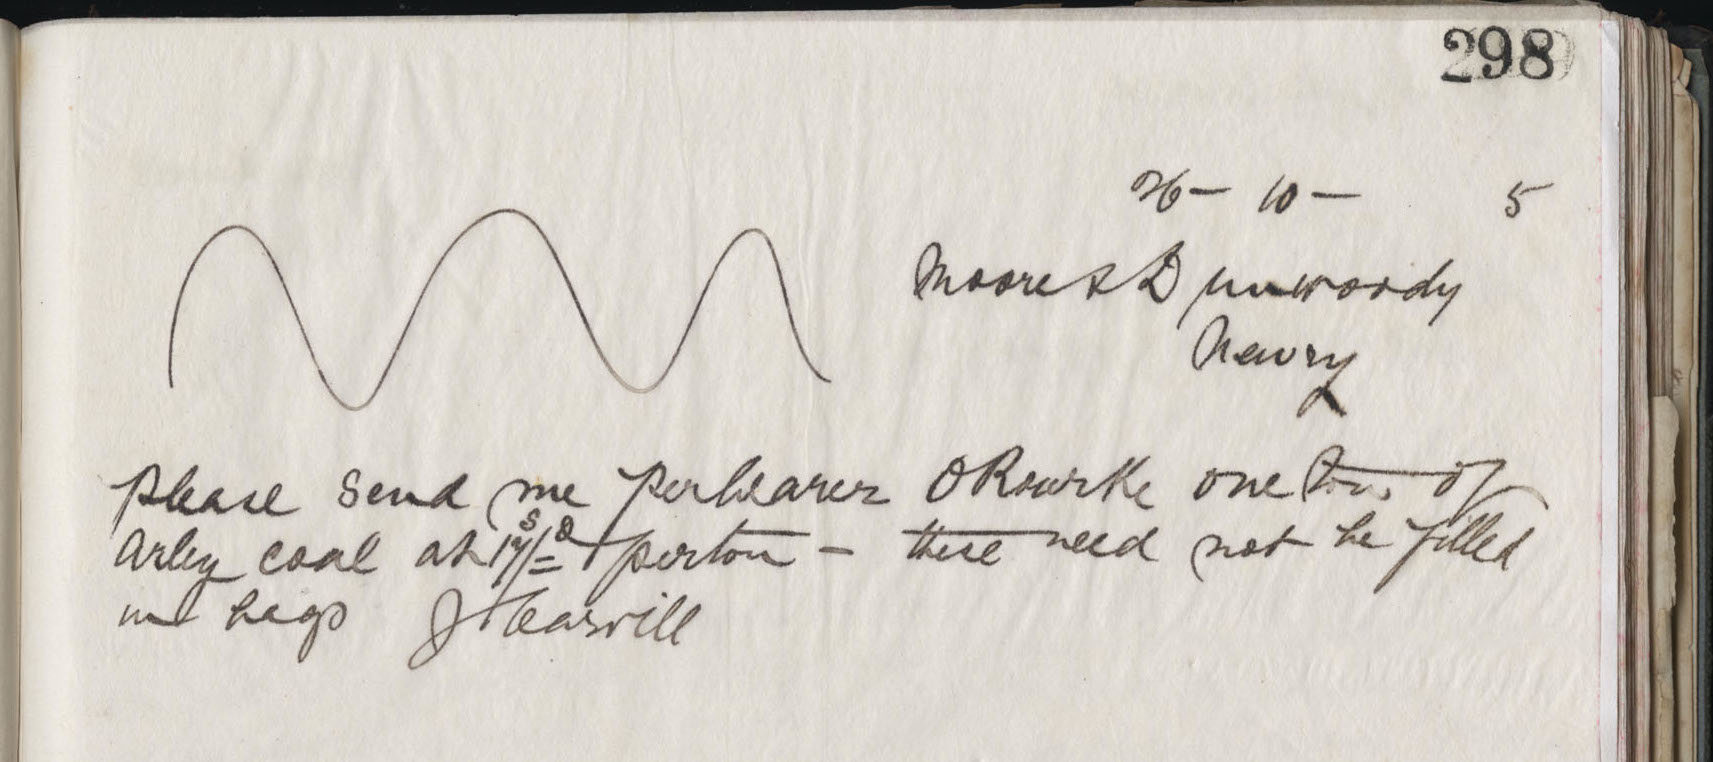 298
26 - 10 - 5
Moore & Dunwoody
Newry
please send me per bearer O Rourke one ton of
Arley coal at 17s/=D per ton - these need not be filled
in bags J Carvill